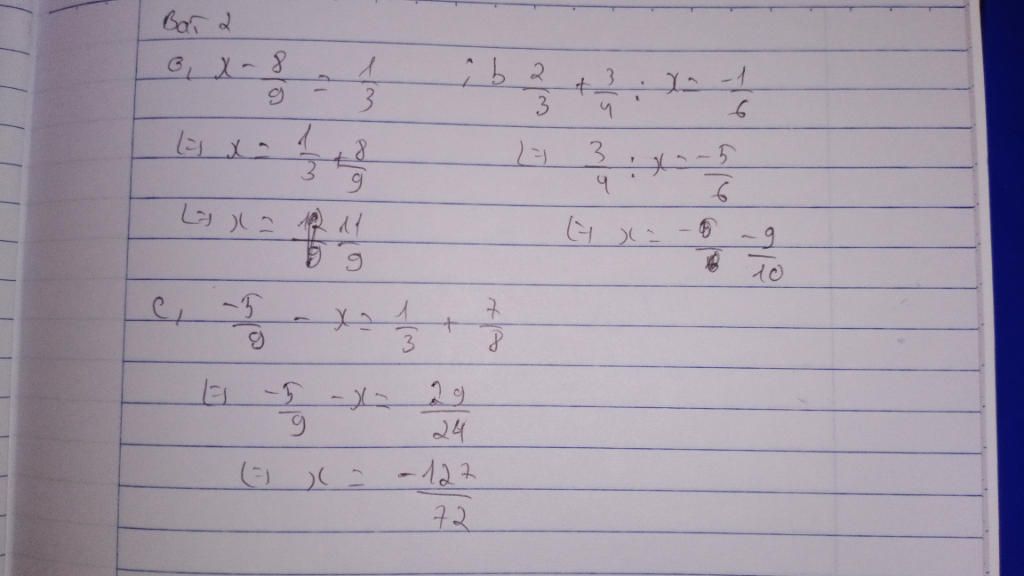 Bài 2
a, x - 8/9 = 1/3 ; b 2/3 + 3/4 : x = -1/6
(=) x = 1/3 + 8/9 (=) 3/4 : x = -5/6
(=) x = 11/9 (=) x = -9/10
c, -5/9 - x = 1/3 + 7/8
(=) -5/9 - x = 29/24
(=) x = -127/72